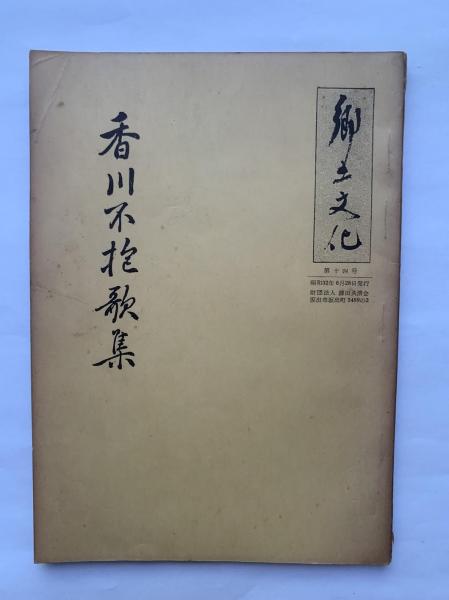 郷土文化
第十四号
昭和32年6月28日発行
財団法人 鎌田共済会
坂出市坂出町2459の3
香川不抱歌集